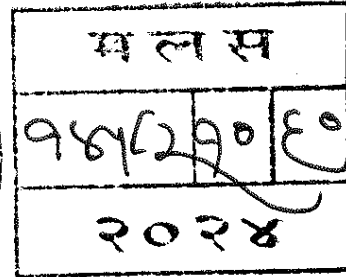 म ल स
१४५८२ १० ६०
२०२४